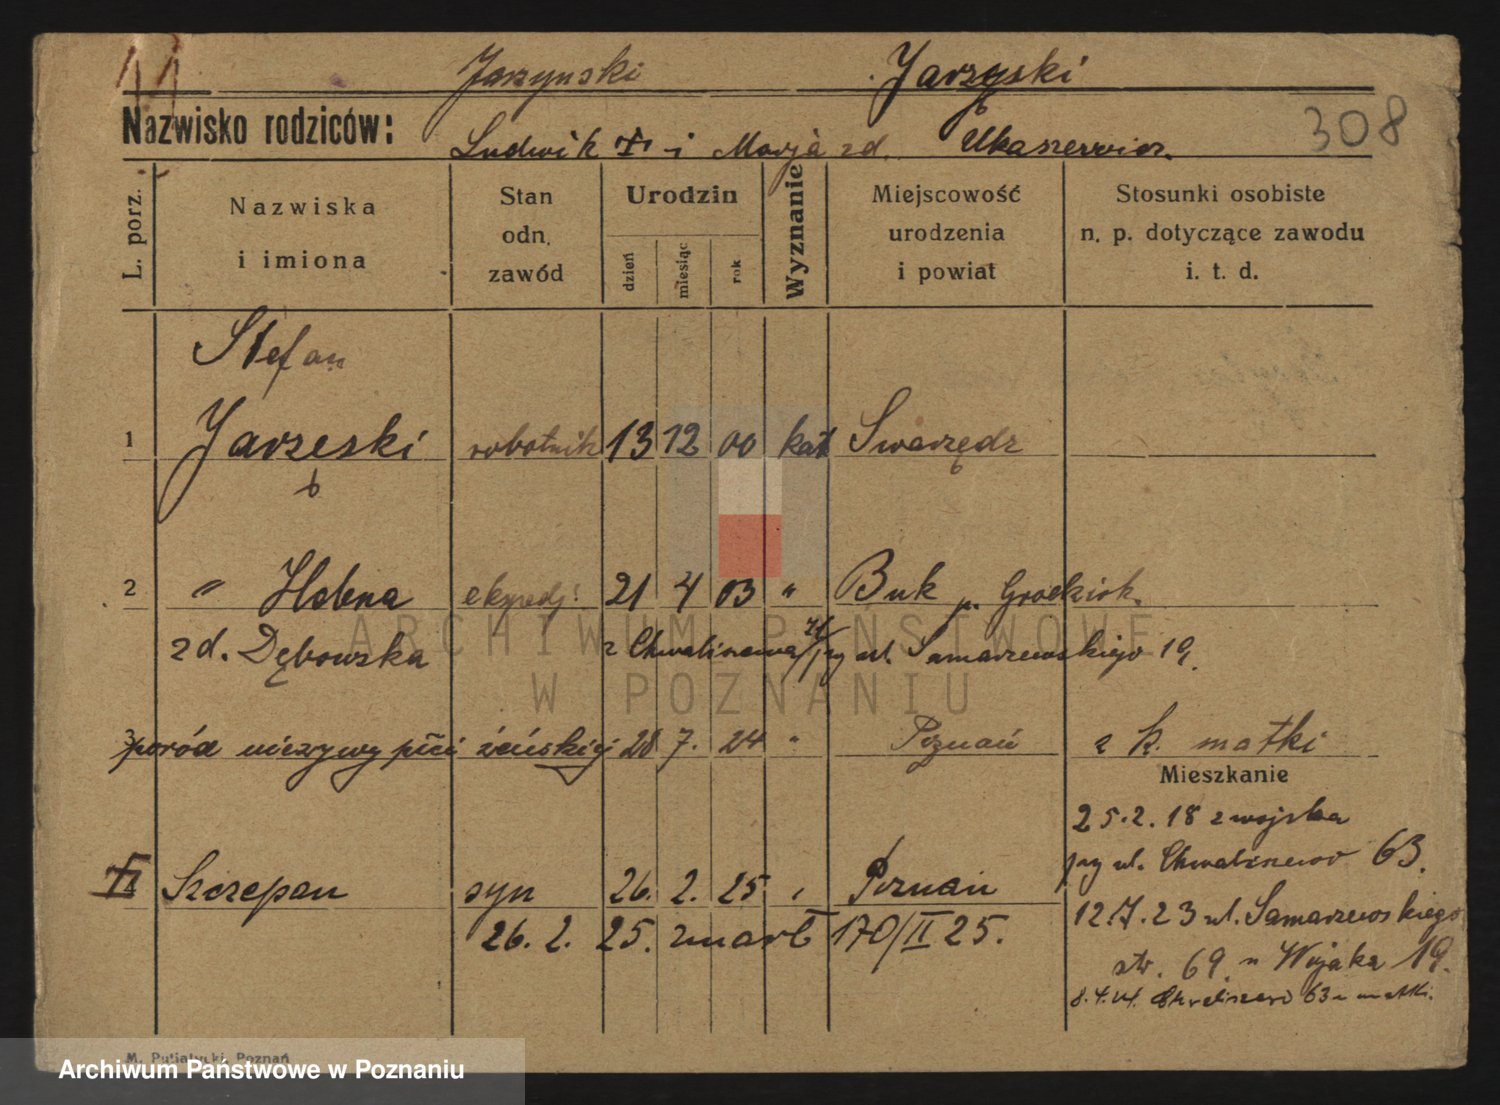 Jarzynski Jarzyski
308
Nazwisko rodziców: Ludwik + i Marja zd. Łukaszewicz.
L. porz.
Nazwiska i imiona
Stan odn. zawód
Urodzin
dzień miesiąc rok
Wyznanie
Miejscowość urodzenia i powiat
Stosunki osobiste n. p. dotyczące zawodu i. t. d.
Stefan
1 Jarzeski robotnik 13 12 00 kat Swarzędz
b
2 " Helena ekspedj. 21 4 03 " Buk p. Grodzisk.
zd. Dębowska z Chwaliszewa 71/ prz ul. Samarzewskiego 19.
3 poród nieżywy płci żeńskiej 28 7. 24 " Poznań z k. matki
Mieszkanie
25.2.18 z wojska
prz ul. Chwaliszewo 63.
Szczepan syn 26. 2. 25 " Poznań
12.7.23 ul. Samarzewskiego
26. 2. 25. zmarł 170/II 25.
str. 69. u Wojaka 19.
8.4.24. Chwaliszewo 63 u matki.
M. Putiatycki, Poznań
ARCHIWUM PAŃSTWOWE
W POZNANIU
Archiwum Państwowe w Poznaniu